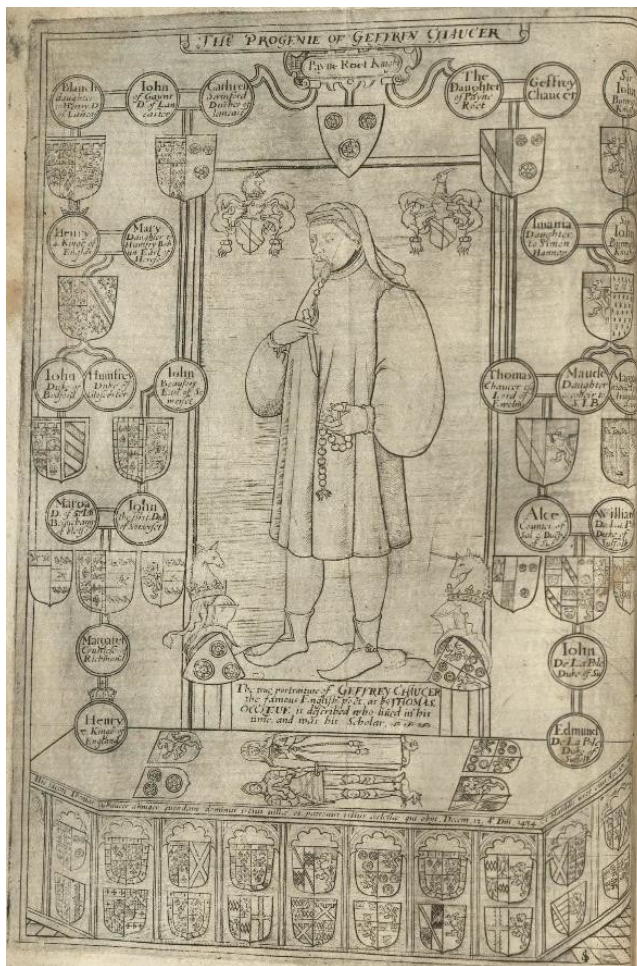 THE PROGENIE OF GEFFREY CHAUCER
Payne Roet Knight
Blanch
daughter
to Henry D
of Lancas
Iohn
of Gaunt
D. of Lan
caster
Cathren
Swinford
Dutches of
Lancast
The
Daughter
of Payne
Roet
Geffrey
Chaucer
Sir
Iohn
Henry
4 Kinge of
England
Mary
Daughter to
Humfry Boh
un Earl of
Heref
Imania
Daughter
to Simon
Hannap
Iohn
Iohn
Duke of
Bedford
Humfrey
Duke of
Glocester
Iohn
Beaufort
Earl of So
merset
Thomas
Chaucer of
Lord of
Ewelm
Mauck
Daughter
Marga
D. of
Iohn
the first Duk
of Somerset
Alce
Countes of
Sal & Duches
of Suf
William
De La P
Duke of
Suffolk
Margaret
Countes of
Richmond
Iohn
De La Pole
Duke of Su
Henry
7 Kinge of
England
Edmund
De La Pole
Duke of
Suffolk
The true portraiture of GEFFREY CHAUCER
the famous English poet, as by THOMAS
OCCLEVE is described who liued in his
time, and was his Scholar.
Hic iacet Thomas Chaucer armiger quondam dominus istius ville et patronus istius ecclesie qui obiit Decem. 12. Ao Dni 1434